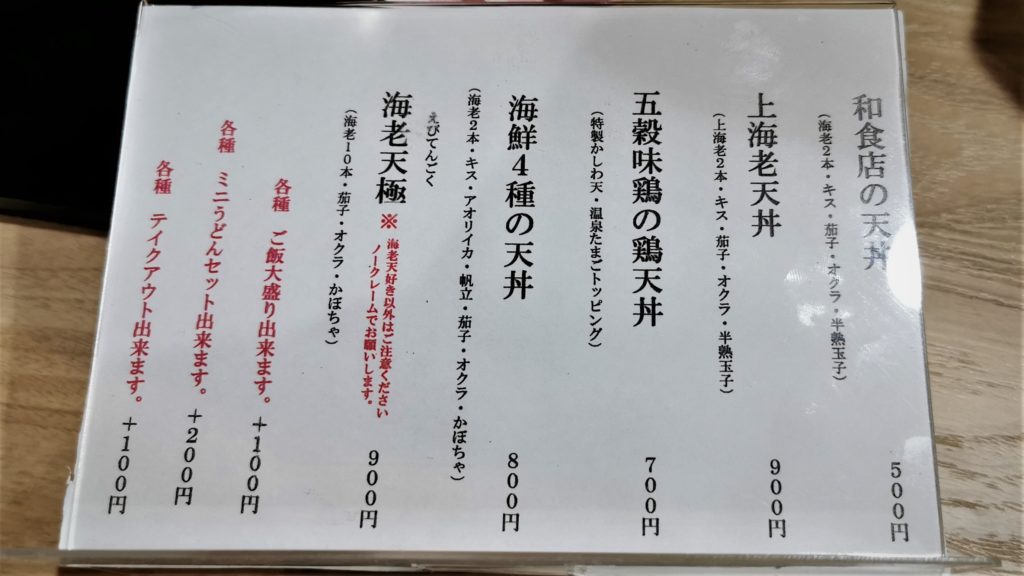 和食店の天丼 500円
（海老2本・キス・茄子・オクラ・半熟玉子）
上海老天丼 900円
（上海老2本・キス・茄子・オクラ・半熟玉子）
五穀味鶏の鶏天丼 700円
（特製かしわ天・温泉たまごトッピング）
海鮮4種の天丼 800円
（海老2本・キス・アオリイカ・帆立・茄子・オクラ・かぼちゃ）
えびてんごく
海老天極 ※ 海老天好き以外はご注意ください
ノークレームでお願いします。 900円
（海老10本・茄子・オクラ・かぼちゃ）
各種 ご飯大盛り出来ます。 +100円
各種 ミニうどんセット出来ます。 +200円
各種 テイクアウト出来ます。 +100円